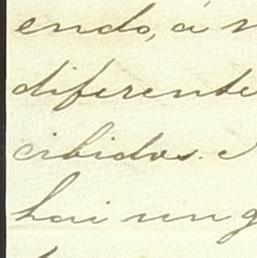 endo, a
diferente
cibidos.
hai un g